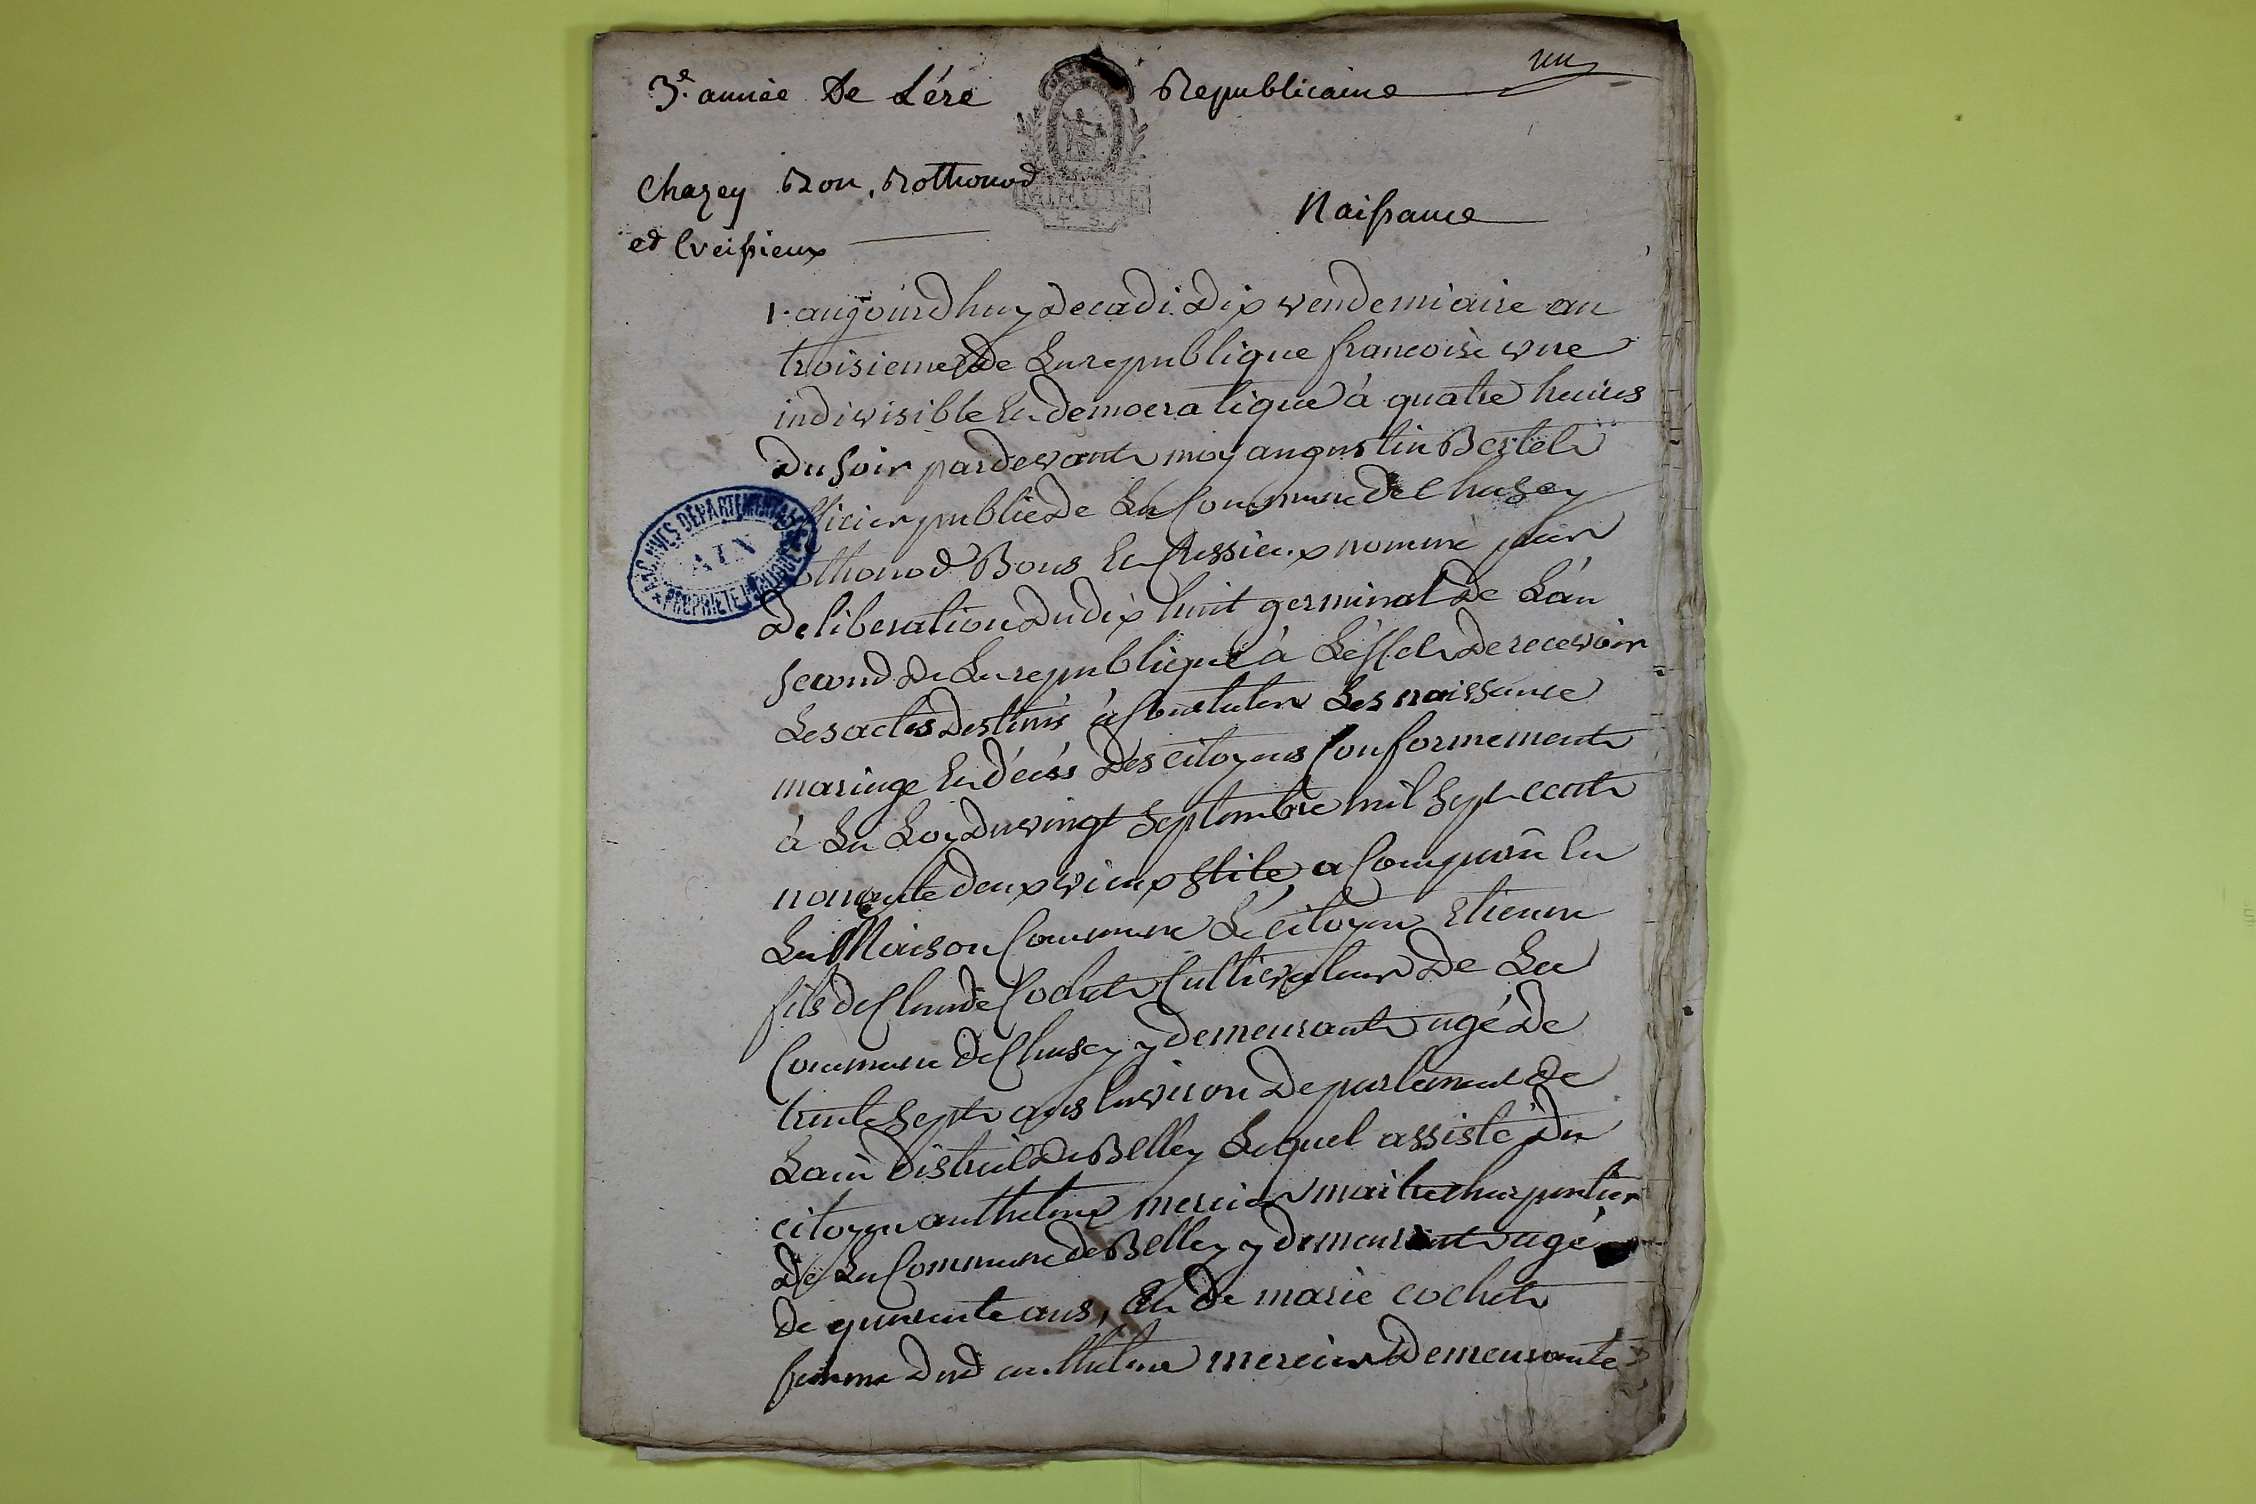 un
3e. année De L'ére Republicaine
Chazey Bon, Rothonod
et Cressieux
Naissance
ARCHIVES DÉPARTEMENTALES
AIN
PROPRIÉTÉ PUBLIQUE
1. aujourdhuy decadi dix vendemiaire an
troisieme de La republique francoise une
indivisible et democratique à quatre heures
du soir pardevant moy augustin Bertet
officier public de La Commune de Chasey
Rothonod Bons et Cressieux nommé par
deliberation du dix huit germinal de L'an
second de La republique à L'effet de recevoir
Les actes destinés à Constater Les naissance
mariage et décés des citoyens Conformement
à La Loy du vingt Septembre mil Sept cent
nonante deux vieux Stile, a Comparu en
La Maison Commune Le citoyen Etienne
fils de Claude Cochet Cultivateur de La
Commune de Chasey y demeurant agé de
trente Sept ans environ departement de
Lain district de Belley Lequel assisté du
citoyen anthelme mercier maitre charpentier
de La Commune de Belley y demeurant agé
de quarente ans, et de marie cochet
femme dud anthelme mercier demeurante